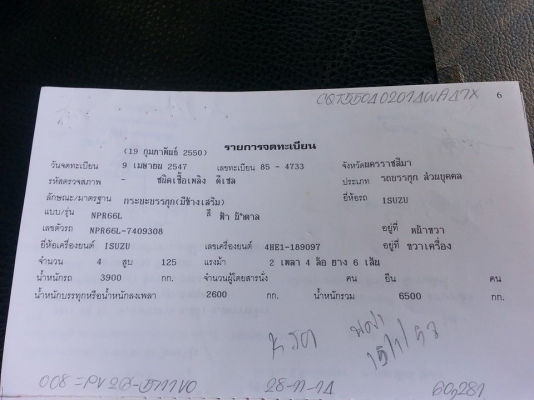 CQT550A0201AWAA7X 6
(19 กุมภาพันธ์ 2550) รายการจดทะเบียน
วันจดทะเบียน 9 เมษายน 2547 เลขทะเบียน 85 - 4733 จังหวัดนครราชสีมา
รหัสตรวจสภาพ - ชนิดเชื้อเพลิง ดีเซล ประเภท รถบรรทุก ส่วนบุคคล
ลักษณะ/มาตรฐาน กระบะบรรทุก(มีข้างเสริม) ยี่ห้อรถ ISUZU
แบบ/รุ่น NPR66L สี ฟ้า น้ำตาล
เลขตัวรถ NPR66L-7409308 อยู่ที่ หน้าขวา
ยี่ห้อเครื่องยนต์ ISUZU เลขเครื่องยนต์ 4HE1-189097 อยู่ที่ ขวาเครื่อง
จำนวน 4 สูบ 125 แรงม้า 2 เพลา 4 ล้อ ยาง 6 เส้น
น้ำหนักรถ 3900 กก. จำนวนผู้โดยสารนั่ง คน ยืน คน
น้ำหนักบรรทุกหรือน้ำหนักลงเพลา 2600 กก. น้ำหนักรวม 6500 กก.
28-11-14 60,281